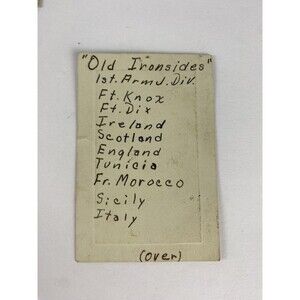 "Old Ironsides"
1st. Arm'd. Div.
Ft. Knox
Ft. Dix
Ireland
Scotland
England
Tunicia
Fr. Morocco
Sicily
Italy
(over)